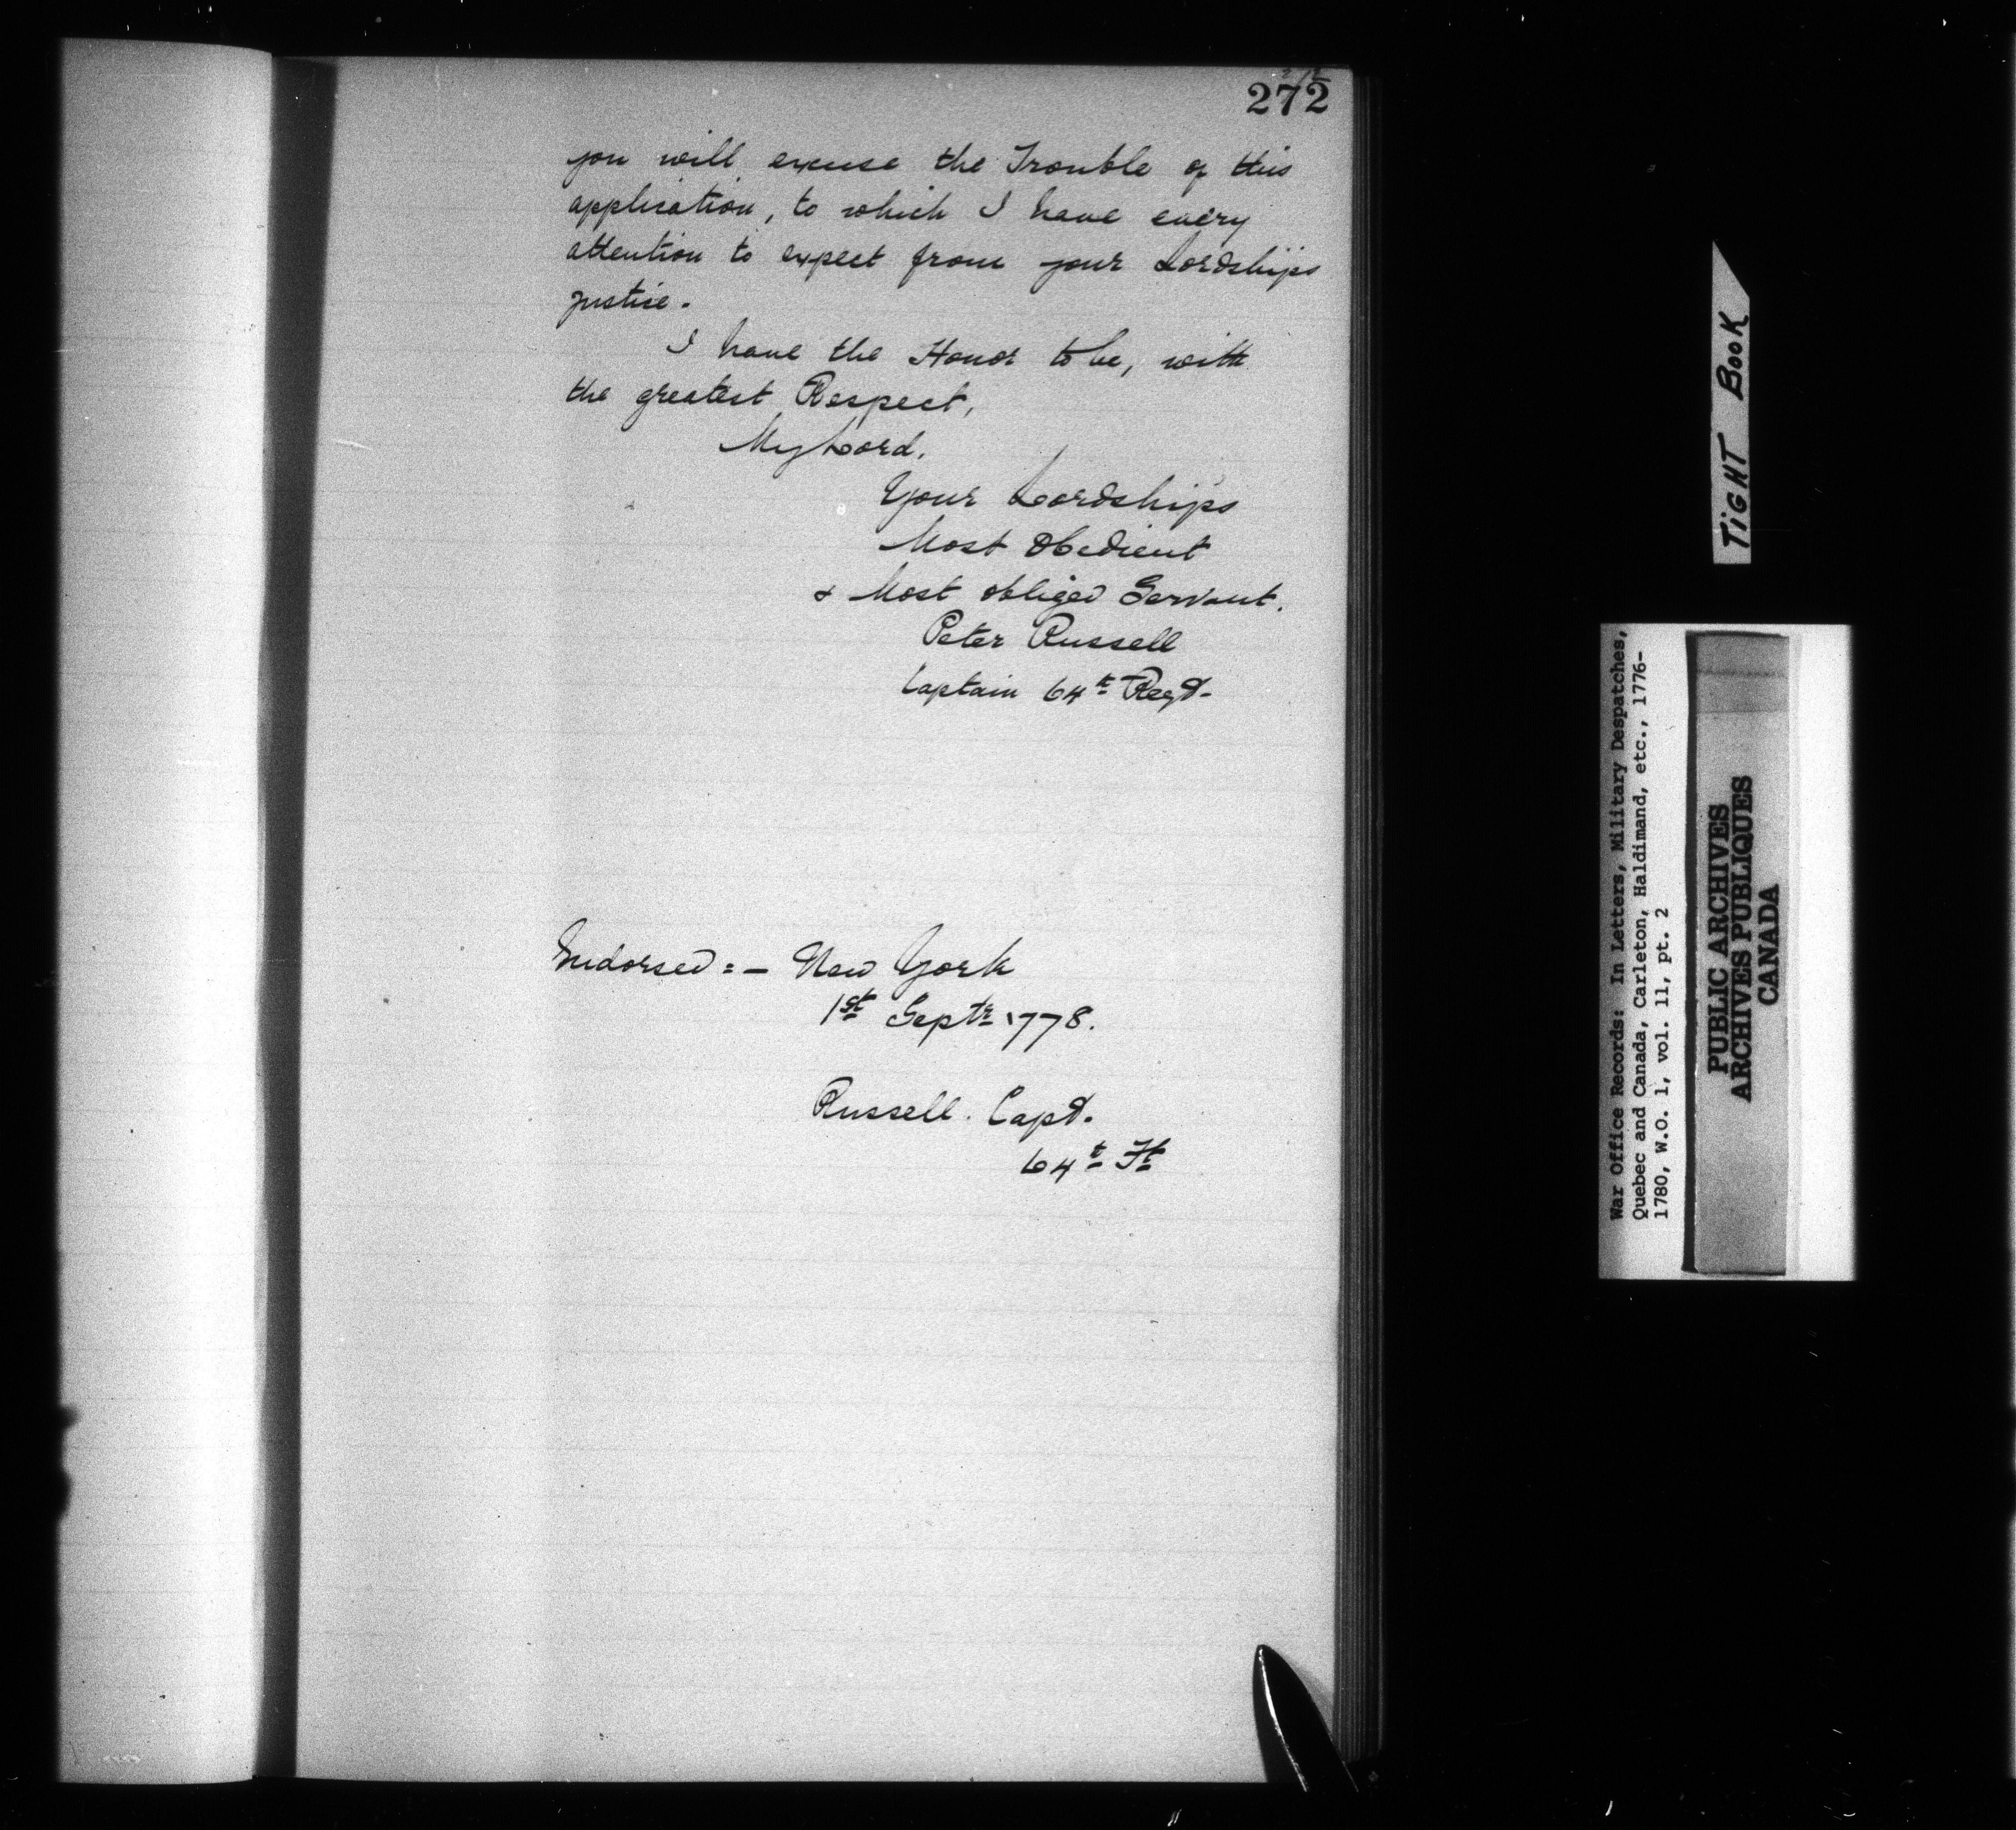 272
you will excuse the Trouble of this
application, to which I have every
attention to expect from your Lordships
justice.
I have the Honor to be, with
the greatest Respect,
My Lord,
Your Lordships
Most Obedient
& Most obliged Servant.
Peter Russell
Captain 64th Regt.
Endorsed :- New York
1st Septr 1778.
Russell. Capt.
64th Ft
TIGHT BOOK
War Office Records: In Letters, Military Despatches,
Quebec and Canada, Carleton, Haldimand, etc., 1776-
1780, W.O. 1, vol. 11, pt. 2
PUBLIC ARCHIVES
ARCHIVES PUBLIQUES
CANADA